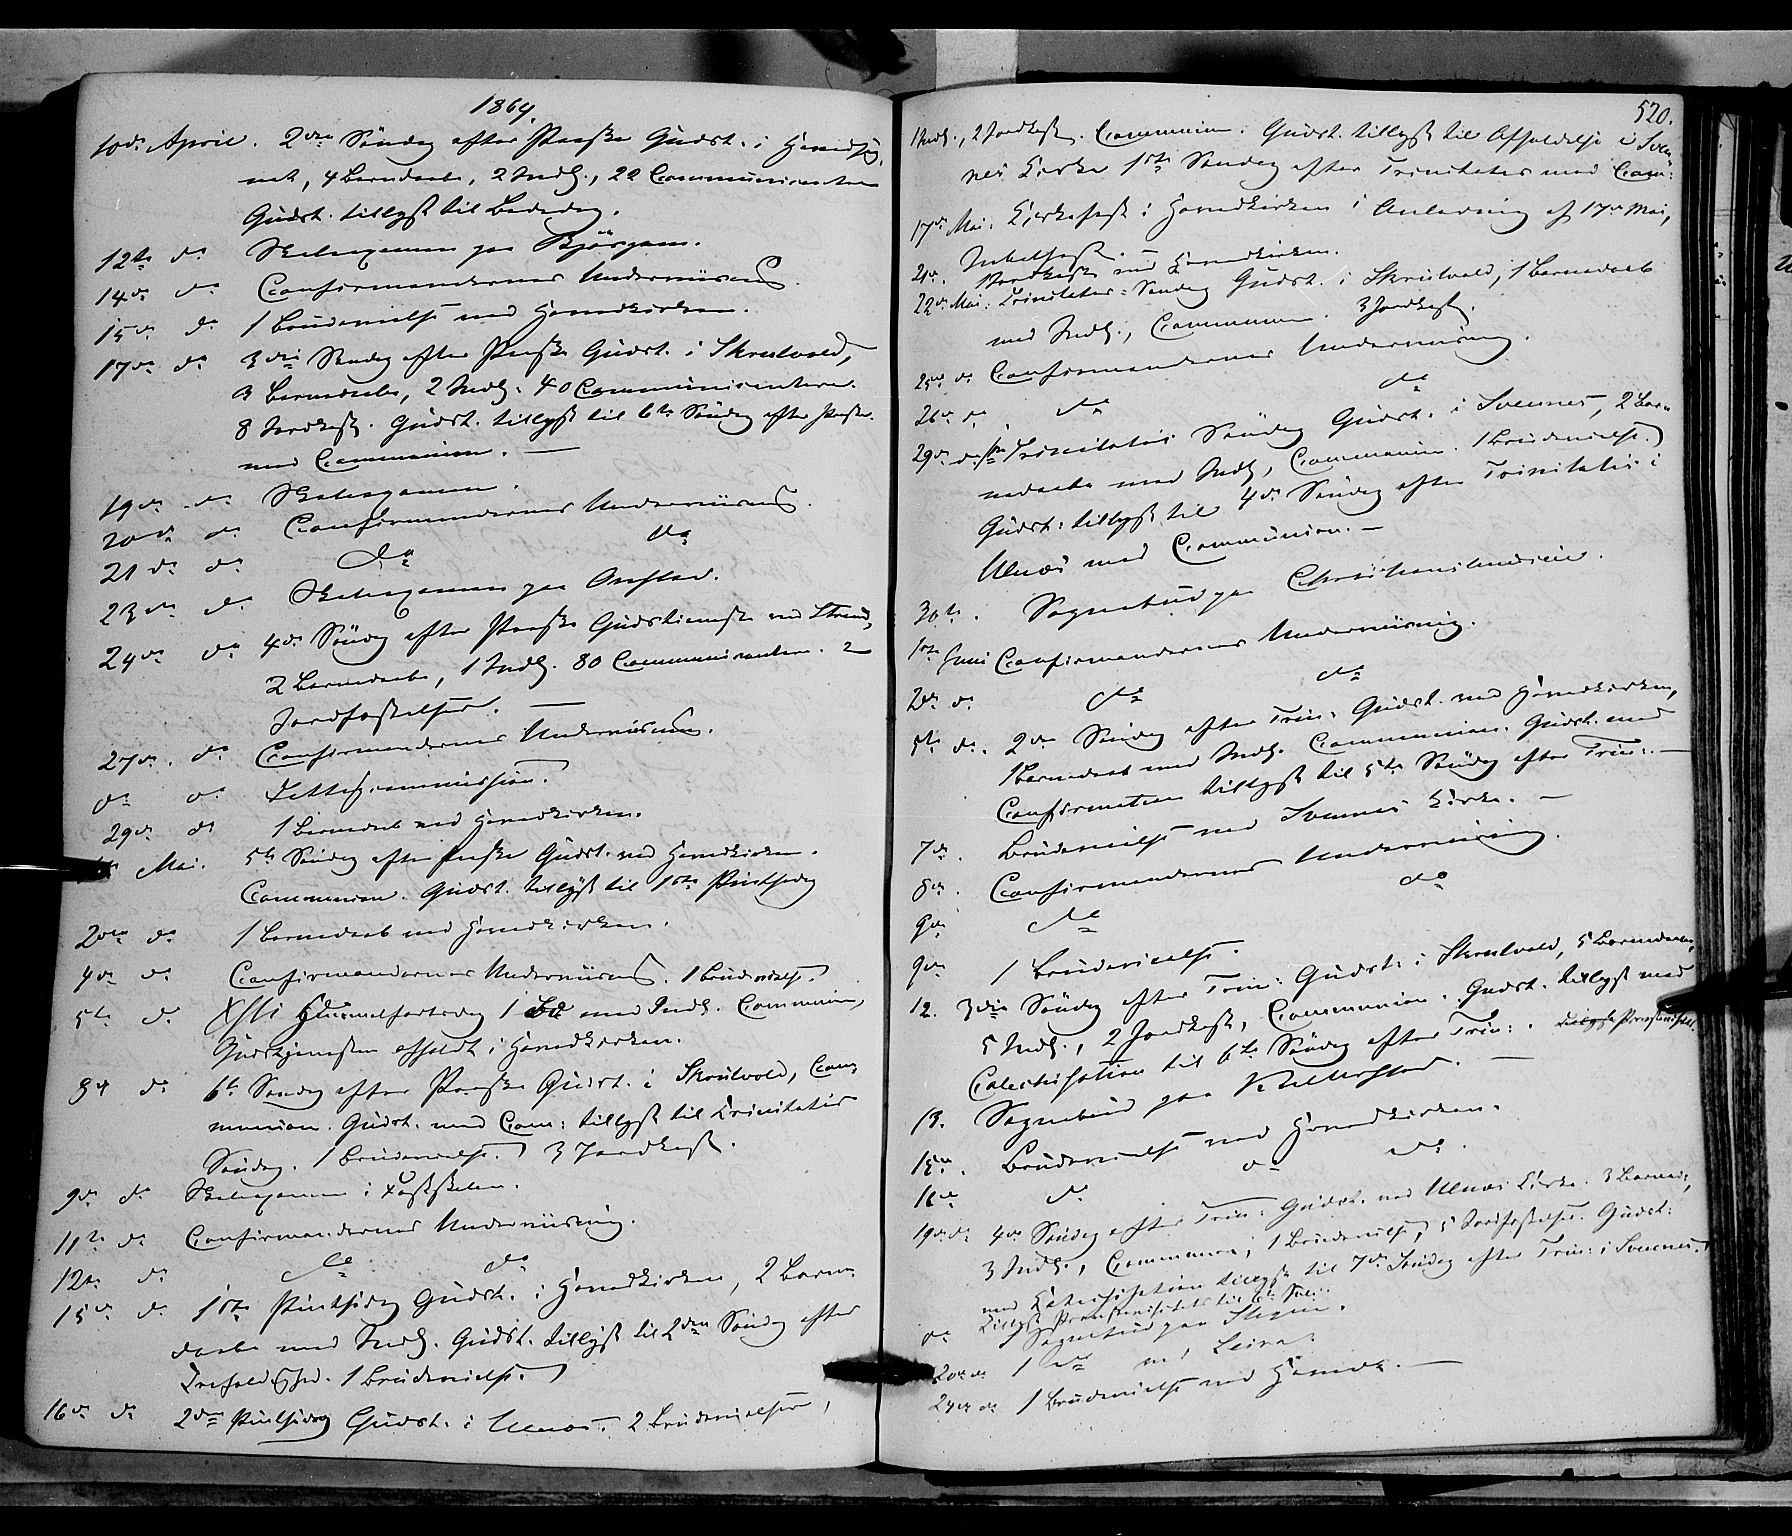 1864.
10de April. 2den Søndag efter Paaske Gudst. i Hoved
4 Barnedaab, 2 Indl., 22 Communicanter
Gudst. tillyst til Bededag.
12te do Skoleexamen paa Bjørgum.
14de do Confirmandernes Underviisning.
15de do 1 Brudevielse ved Hovedkirken.
17de do 3die Søndag efter Paaske Gudst. i Skrutvold,
3 Barnedaab, 2 Indl. 40 Communicantere.
8 Jordkast. Gudst. tillyst til 6te Søndag efter Paaske
med Communion. —
19de do Skoleexamen.
20de do Confirmandernes Underviisning.
21de do do do
23de do Skoleexamen paa
24de do 4de Søndag efter Paaske Gudstjeneste ved Strand,
2 Barnedaab, 1 Indl. 80 Communicanter. 2
Jordfæstelser. —
27de do Confirmandernes Underviisning.
do do commission.
29de do 1 Barnedaab ved Hovedkirken.
Mai. 5te Søndag efter Paaske Gudst. ved Hovedkirken.
Communion. Gudst. tillyst til 1ste Pintsedag
2den do 1 Barnedaab ved Hovedkirken.
4de do Confirmandernes Underviisning. 1 Brudevielse.
5te do Xsti Himmelfartsdag 1 med Indl. Communion,
Gudstjenesten afholdt i Hovedkirken.
8de do 6te Søndag efter Paaske Gudst. i Skrutvold, Com-
munion. Gudst. med Com: tillyst til Trinitatis
Søndag. 1 Brudevielse. 3 Jordkast.
9de do Skoleexamen i Fastskolen.
11te do Confirmandernes Underviisning.
12te do do do
15de do 1ste Pintsedag Gudst. i Hovedkirken, 2 Barne
daab med Indl. Gudst. tillyst til 2den Søndag efter
Trefoldighed. 1 Brudevielse.
16de do 2den Pintsedag Gudst. i Ulnæs. 2 Brudevielser,
520.
1 Indl., 2 Jordkast. Communion. Gudst. tillyst til Afholdelse i Sven
nes Kirke 1ste Søndag efter Trinitatis med Com:
17de Mai. Kirkefest i Hovedkirken i Anledning af 17de Mai,
Jubelfest. —
21de. 1 Jordkast ved Hovedkirken.
22de Mai. Trinitatis-Søndag Gudst. i Skrutvold, 1 Barnedaab
med Indl., Communion. 3 Jordkast.
25de do Confirmandernes Underviisning.
26de do do do
29de do 1ste Trinitatis Søndag Gudst. i Svennes, 2 Bar-
nedaab med Indl, Communion. 1 Brudevielse.
Gudst: tillyst til 4de Søndag efter Trinitatis i
Ulnæs med Communion. —
30te. Sognebud paa
1ste Juni Confirmandernes Underviisning.
2den do do do
5te do. 2den Søndag efter Trin: Gudst. ved Hovedkirken,
1 Barnedaab med Indl. Communion. Gudst. med
Confirmation tillyst til 5te Søndag efter Trin: —
7de. Brudevielse ved Svennes Kirke. —
8de. Confirmandernes Underviisning.
9de do do
9de 1 Brudevielse.
12. 3die Søndag efter Trin: Gudst. i Skrutvold, 5 Barnedaab,
5 Indl., 2 Jordkast, Communion. Gudst. tillyst med
Catechisation til 6te Søndag efter Trin:.
13. Sognebud paa
15de. Brudevielse ved Hovedkirken.
16de do do do.
19de do 4de Søndag efter Trin: Gudst. ved Ulnæs Kirke. 3 Barned,
3 Indl., Communion, 1 Brudevielse, 5 Jordfæstelser. Gudst:
med Katechisation tillyst til 7de Søndag efter Trin: i Svennes.
do 1 Sognebud paa
20de do 1 do ved Leira.
24de do 1 Brudevielse ved Hovedk. —